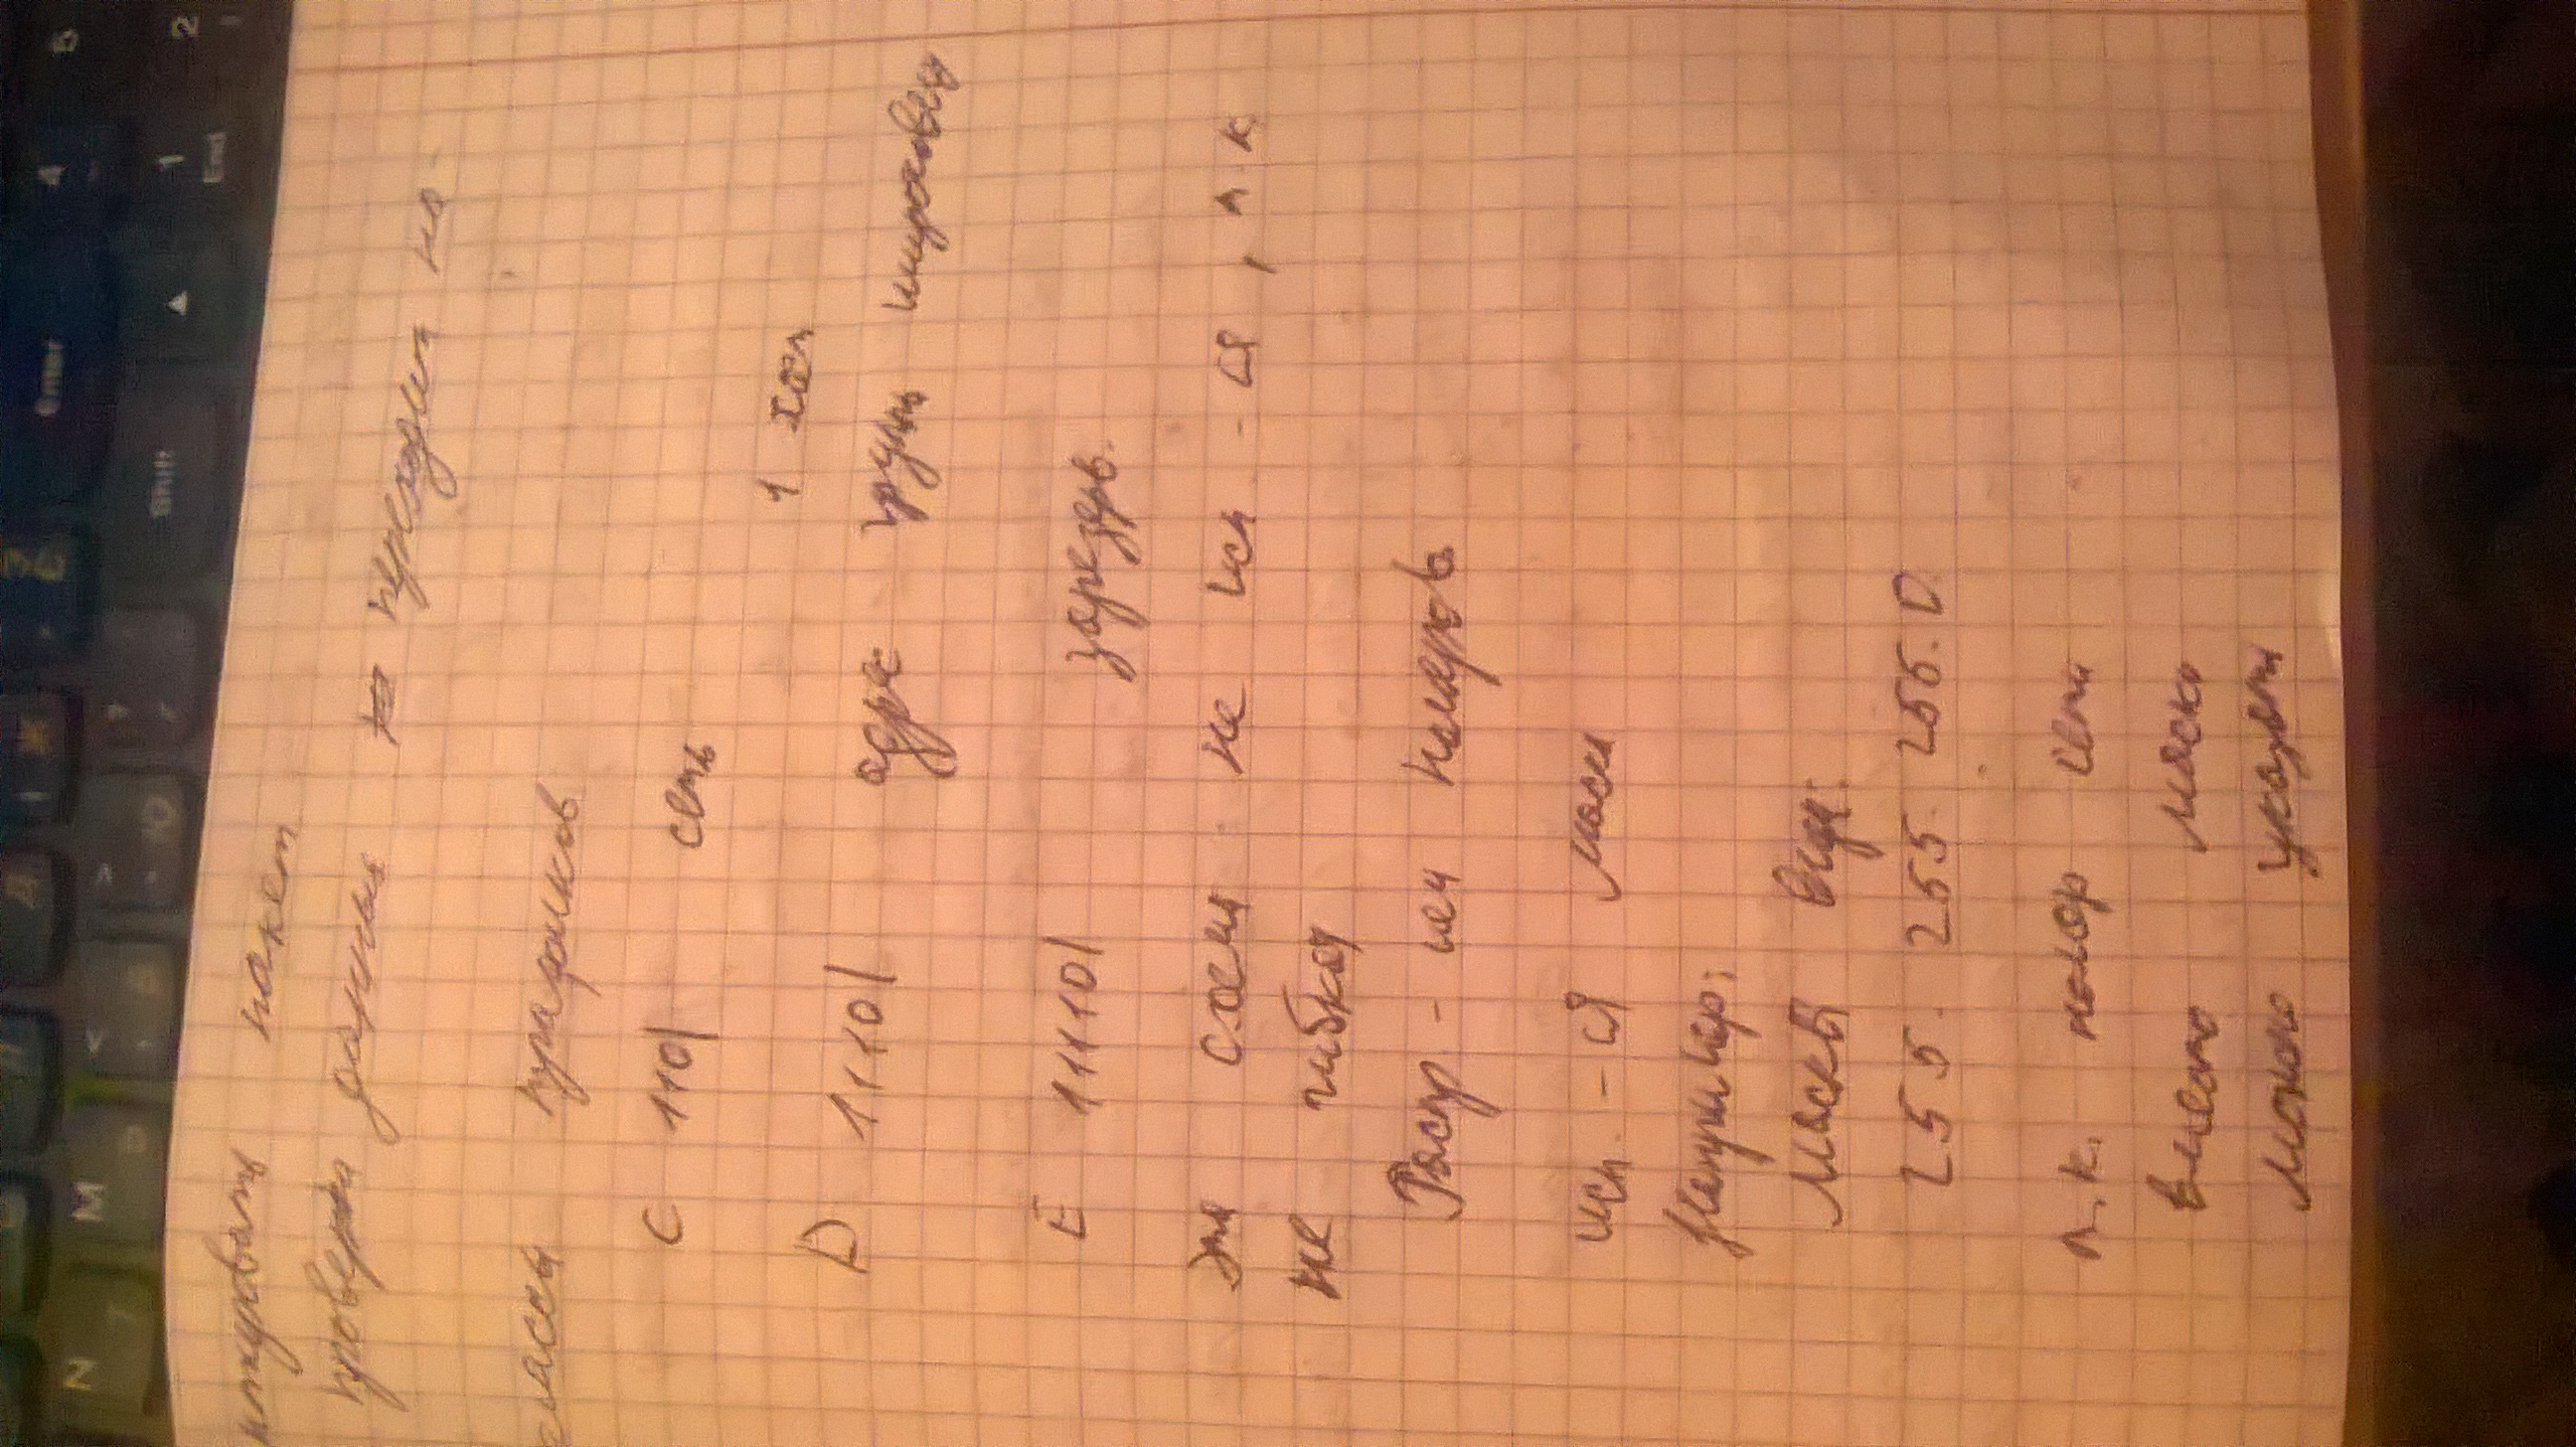 N M < >
Enter 4 5
Shift 1 2
End
пакет
проверка данных переходит на-
классы трафиков
С 110| сеть
1 хост
D 1110| адрес группы широковещ
E 11110| зарезерв.
Эта схема не исп - ся, т.к
не гибкая
Распр - ием номеров
исп. - ся маски
Например:
Маски вида:
255. 255. 255. 0.
т.к. номер сети
вместо маски
можно указать